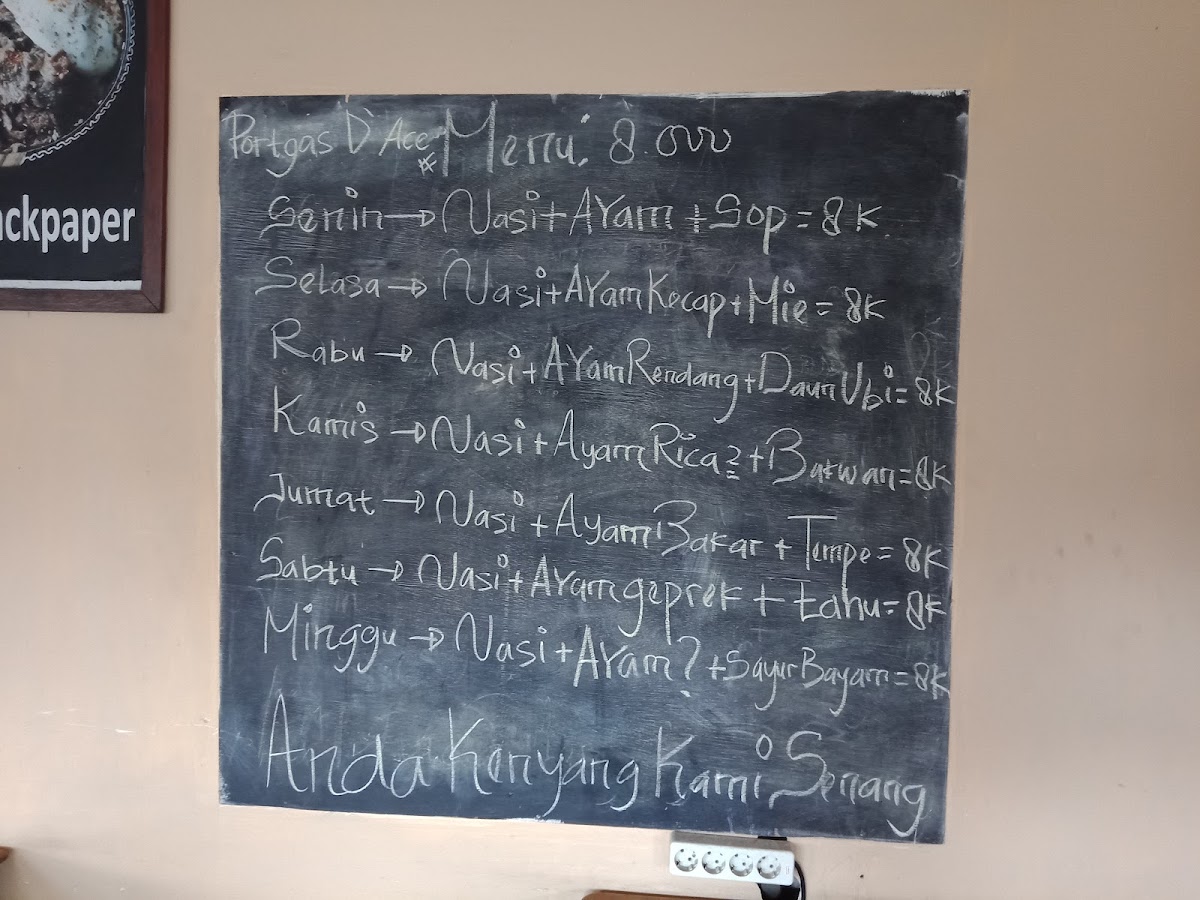 ackpaper
Portgas D'Ace Menu: 8.000
Senin → Nasi + Ayam + Sop = 8K
Selasa → Nasi + Ayam Kecap + Mie = 8K
Rabu → Nasi + Ayam Rendang + Daun Ubi = 8K
Kamis → Nasi + Ayam Rica2 + Bakwan = 8K
Jumat → Nasi + Ayam Bakar + Tempe = 8K
Sabtu → Nasi + Ayam geprek + tahu = 8K
Minggu → Nasi + Ayam? + Sayur Bayam = 8K
Anda Kenyang Kami Senang